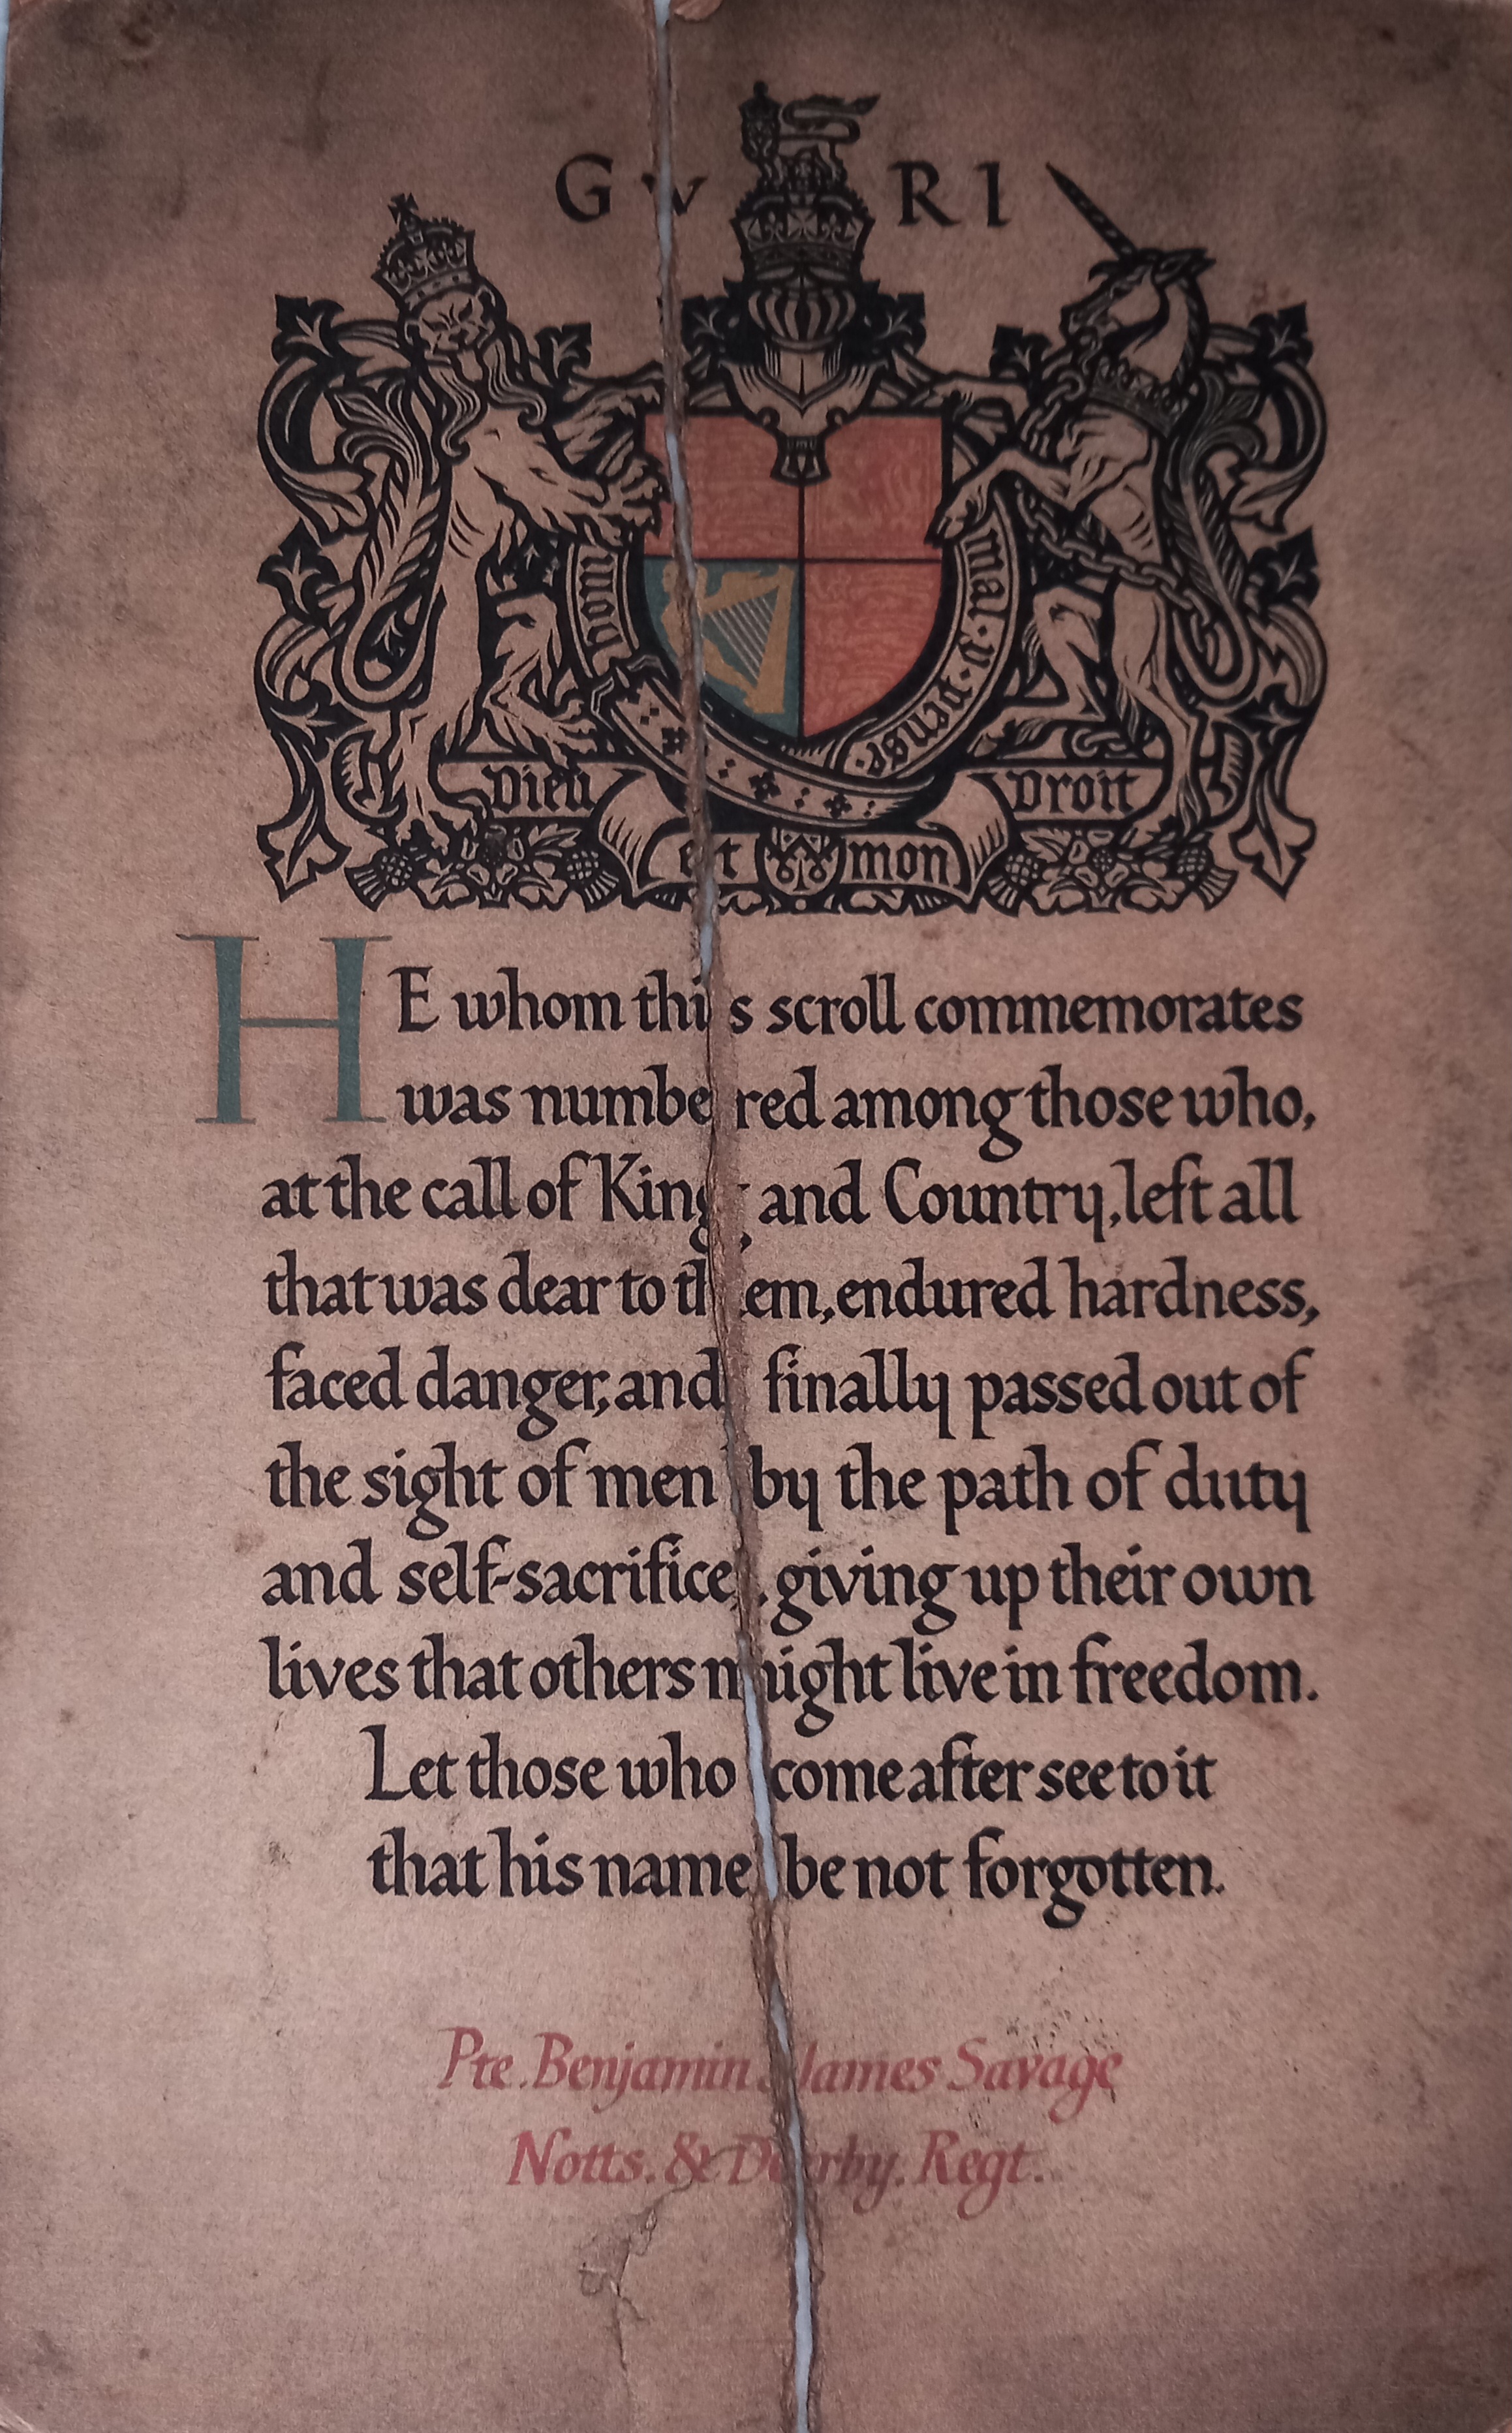 G V R I
mal · y · pense ·
Dieu
Droit
et mon
HE whom this scroll commemorates
was numbered among those who,
at the call of King and Country, left all
that was dear to them, endured hardness,
faced danger, and finally passed out of
the sight of men by the path of duty
and self-sacrifice, giving up their own
lives that others might live in freedom.
Let those who come after see to it
that his name be not forgotten.
Pte. Benjamin James Savage
Notts. & Derby. Regt.